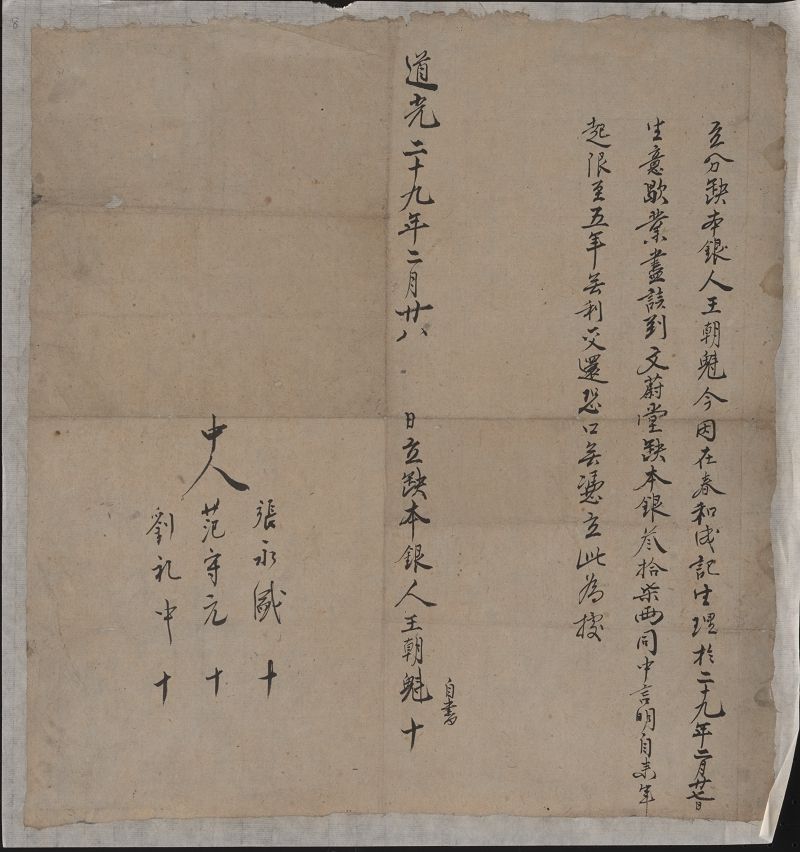 立分缺本銀人王朝魁今因在春和成記生理於二十九年二月廿七日
生意歇業盡該到文蔚堂缺本銀叁拾柒両同中言明自来年
起限至五年無利交還恐口無憑立此為據
道光二十九年二月廿八 日立缺本銀人王朝魁 自書 十
中人
張永盛 十
范守元 十
劉礼中 十
8